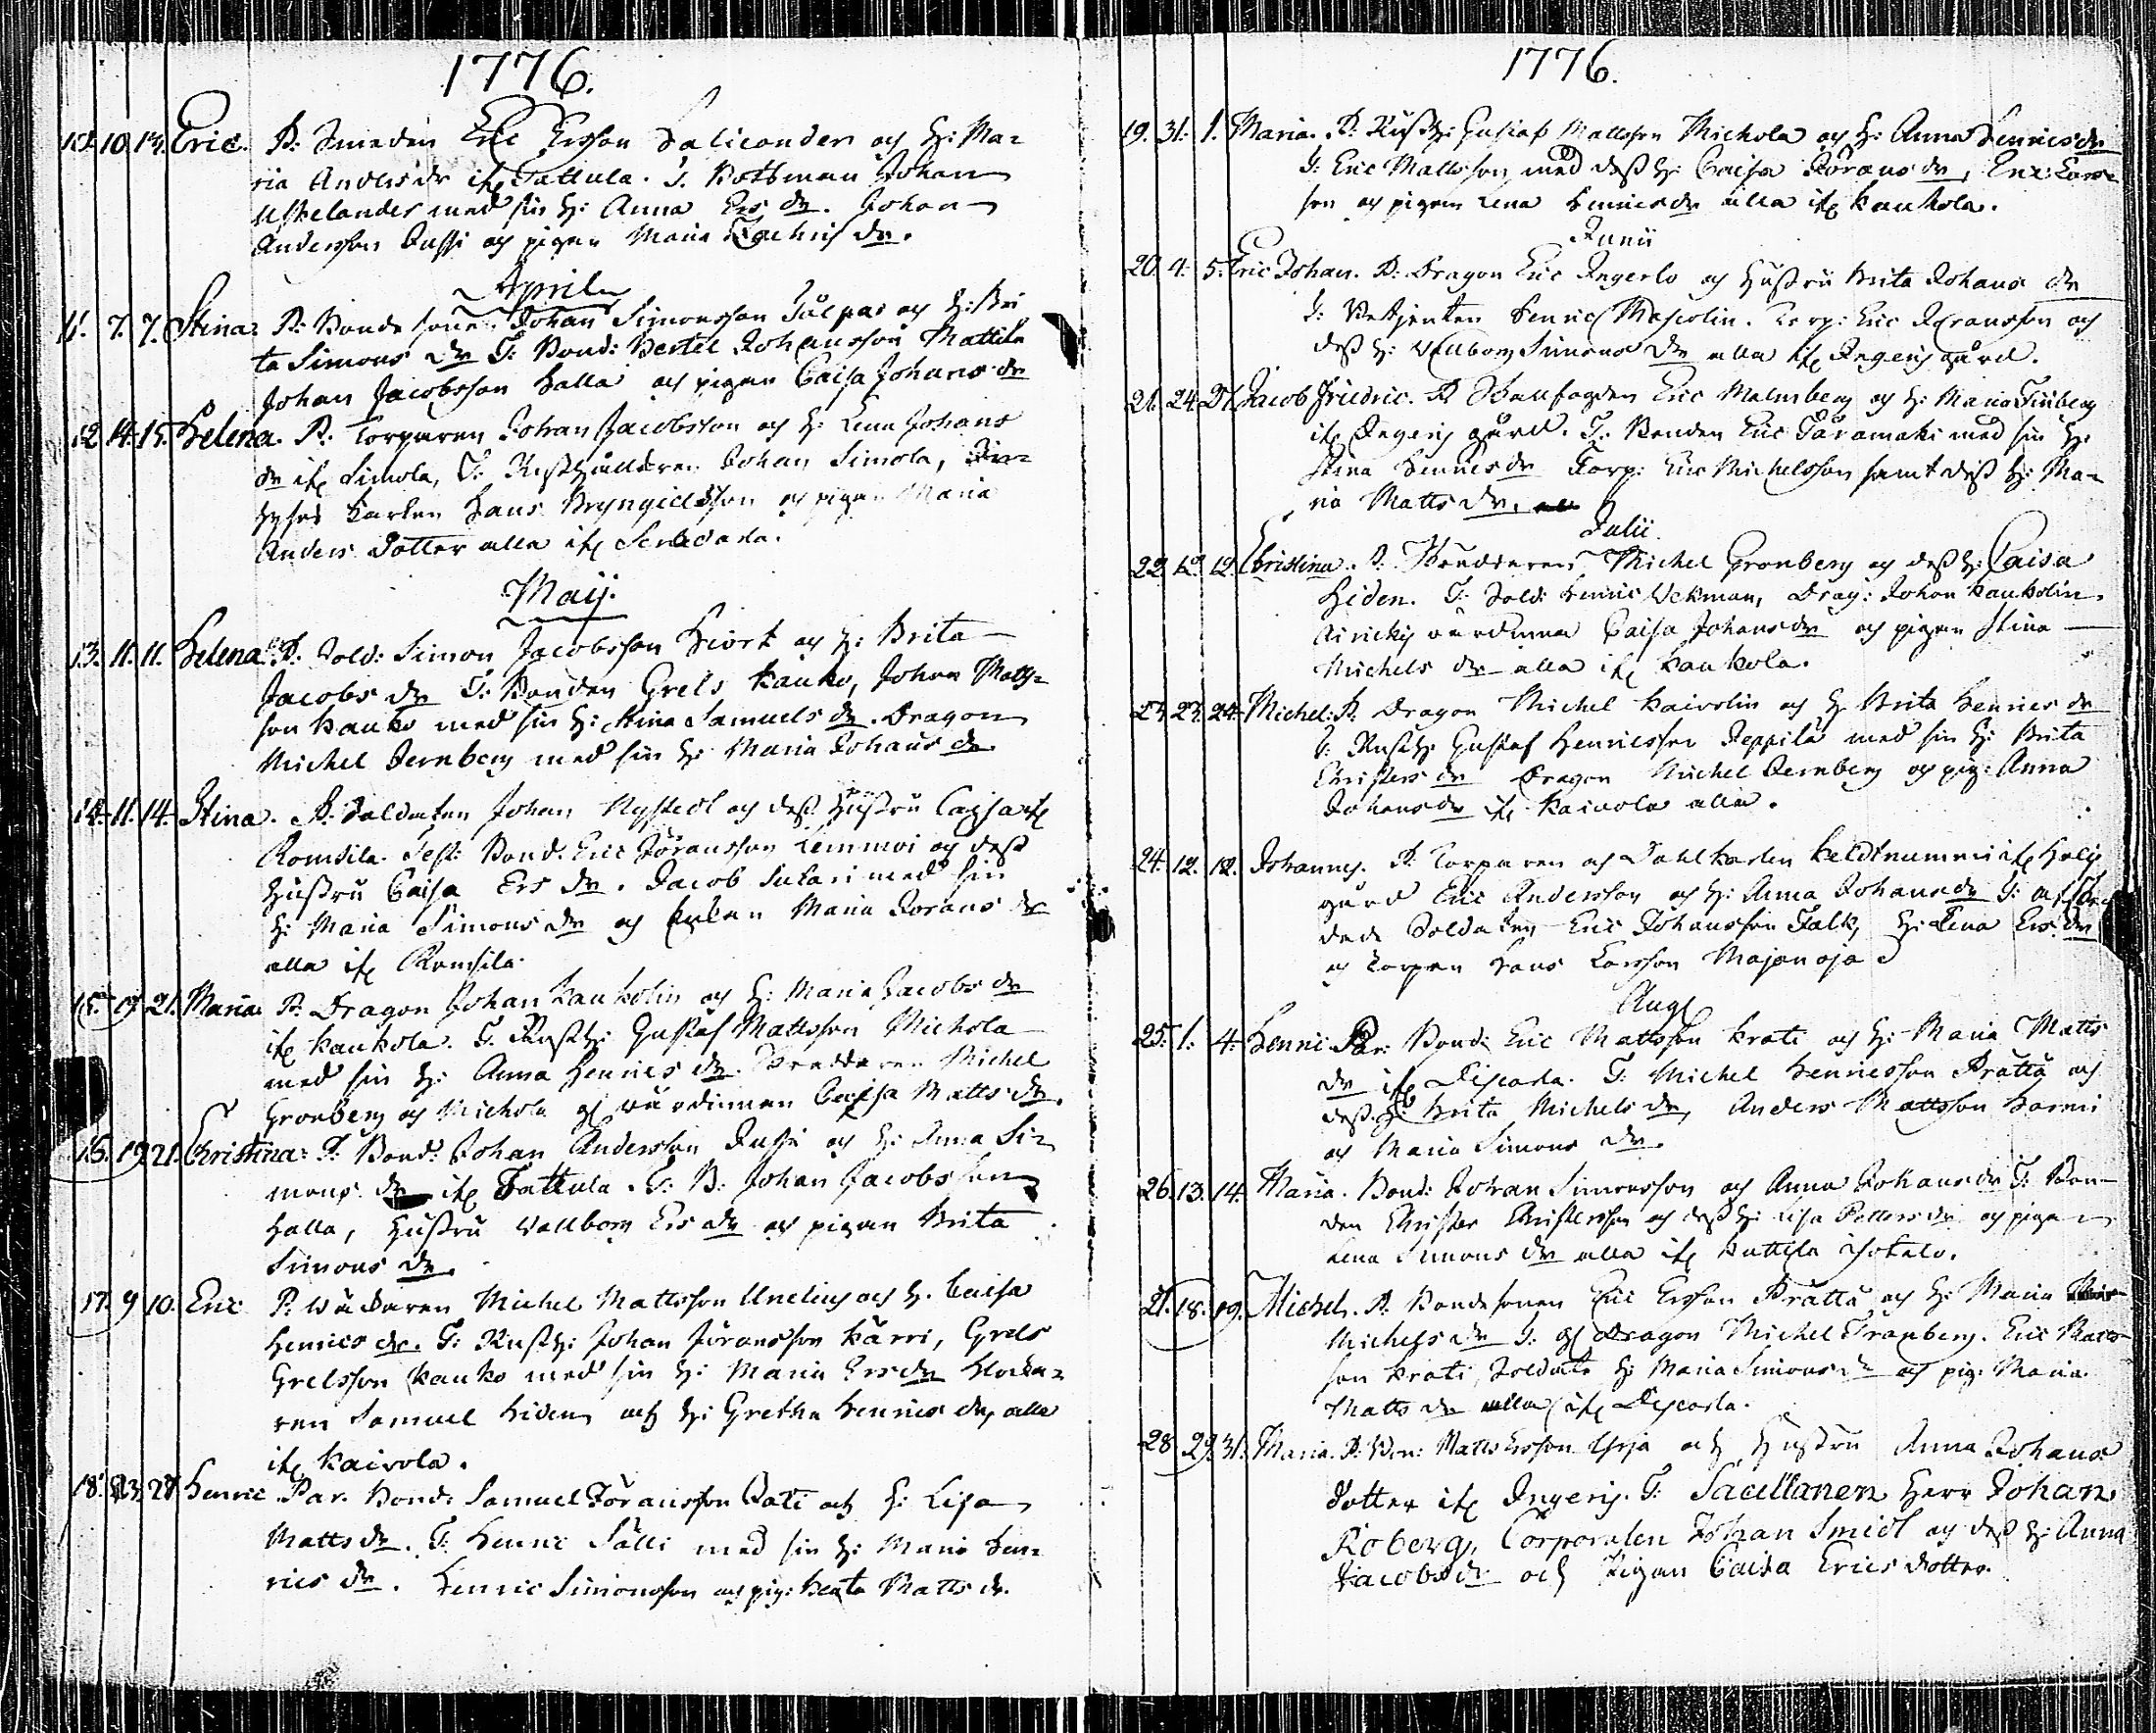 1776.
10. 13. Eric. P. Smeden Eric Ersson Salicander och H: Ma=
ria Anders dr if Tattula. T. Båtsman Johan
med sin H: Anna Ers dr. Johan
Andersson Jussi och pigan Maria dr.
April
11. 7. 7. Stina. P. Bonde sonen Johan Simonsson och H: Bri
ta Simons dr T: Bond: Bertel Johansson Mattila
Johan Jacobsson Halla och pigan Caisa Johans dr
12. 14. 15. Helena. P. Torparen Johan Jacobsson och H: Lena Johans
dr if Simola, T: Rusthållaren Johan Simola,
karlen Hans Bryngillsson och pigan Maria
Anders dotter alla if
Maij.
13. 11. 11. Helena. P. Sold: Simon Jacobsson Hiort och H: Brita
Jacobs dr T: Bonden Grels Kauko, Johan Matts=
son Kauko med sin H: Stina Samuels dr. Dragon
Michel Jernberg med sin H: Maria Johans dr
14. 11. 14. Stina. P. Soldaten Johan Nystedt och dess Hustru Caisa if
Romsila. Test: Bond. Eric Jöransson Lemmoi och dess
Hustru Caisa Ers dr. Jacob med sin
H: Maria Simons dr och Enkan Maria Jörans dr
alla if Romsila.
15. 19. 21. Maria. P. Dragon Johan Kaukolin och H: Maria Jacobs dr
if Kaukola. T. Rusth: Gustaf Mattsson Michola
med sin H: Anna Henrics dr. Michel
Gronberg och Michola gl värdinnan Caisa Matts dr.
16. 19 21. Christina: P. Bond: Johan Andersson Jussi och H: Anna Si=
mons dr if Tattula. T: B: Johan Jacobsson
Halla, Hustru Wallborg Ers dr och pigan Brita
Simons dr.
17. 9 10. Eric P. Michel Mattsson Unelius och H. Caisa
Henrics dr. T: Rusth: Johan Jöransson Kärri, Grels
Grelsson Kauko med sin H: Maria Ers dr Klocka=
ren Samuel Hiden och H: Gretha Henrics dr, alla
if Kaivola.
18. 23. 28 Henric Par. Bond. Samuel Jöransson och H: Lisa
Matts dr. T. Henric Sälli med sin H: Maria Hen=
rics dr. Henric Simonsson och pig: Beata Matts dr.
1776.
19. 31. 1. Maria. P. Rusth: Gustaf Mattsson Michola och H: Anna Henrics dr
T. Eric Mattsson med dess H: Caisa Jörans dr, Eric Lars=
son och pigan Lena Henrics dr alla if Kaukola.
Junii
20. 4. 5. Eric Johan. P. Dragon Eric Ingerlo och Hustru Brita Johans dr
T: Betjenten Henric Masolin. Torp: Eric Jöransson och
dess H: Wallborg Simons dr alla if Ingeris gård.
21. 24. 27. Jacob Friedric. P. Eric Malmberg och H: Maria Finberg
if Ingeris gård. T: Bonden Eric Järamäki med sin H:
Stina Henrics dr Torp: Eric Michelsson samt dess H: Ma=
ria Matts dr.
Julii
22. 12. 12. Christina. P. Michel Gronberg och dess H: Caisa
Hiden. T. Sold: Henric Uckman, Drag: Johan Kaukolin
värdinna Caisa Johans dr och pigan Stina
Michels dr alla if Kaukola.
23. 23. 24. Michel. P. Dragon Michel Kaivolin och H: Brita Henrics dr
T: Rusth: Gustaf Henricsson Jeppilä med sin H: Brita
Christers dr Dragon Michel Jernberg och pig: Anna
Johans dr if Kaivola alla.
24. 12. 12. Johannes. P. Torparen och Karlen Keldinummi if Helis
gård Eric Andersson och H: Anna Johans dr T: afske
dade Soldaten Eric Johansson Falk, H: Lena Ers dr
och Torparen Hans Larsson Majanoja
Aug
25. 1. 4. Henric Par: Bond: Eric Mattsson Krati och H: Maria Matts
dr if T. Michel Henricsson Prättä och
dess H: Brita Michels dr, Anders Mattsson Harmi
och Maria Simons dr.
26. 13. 14. Maria. Bond: Johan Simonsson och Anna Johans dr T. Bon=
den Christer Christersson och dess H: Lisa Petters dr och pigan
Lena Simons dr alla if Kuttila
27. 18. 19. Michel. P. Bondesonen Eric Ersson Prättä och H: Maria
Michels dr T. gl Dragon Michel Tranberg. Eric Matts
son Krati, Soldats H: Maria Simons dr och pig: Maria
Matts dr alla if
28. 29. 31. Maria. P. Bon: Matts Ersson Yrjä och Hustru Anna Johans
dotter if Ingeris. T: Sacellanen Herr Johan
Roberg, Corporalen Johan Smidt och dess H: Anna
Jacobs dr och Pigan Caisa Erics dotter.